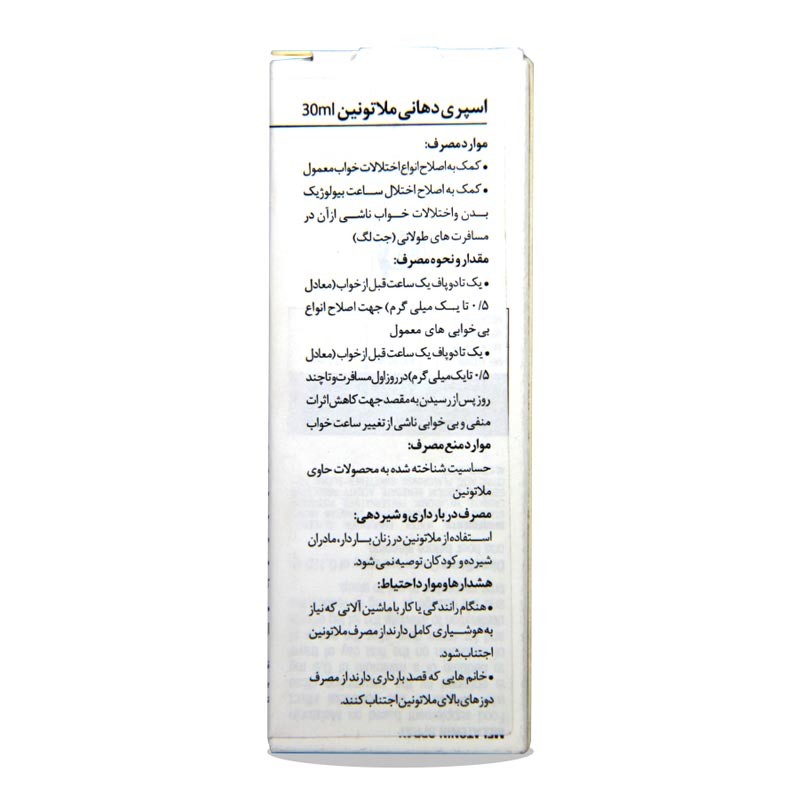 اسپری دهانی ملاتونین 30ml
موارد مصرف:
• کمک به اصلاح انواع اختلالات خواب معمول
• کمک به اصلاح اختلال ساعت بیولوژیک
بدن و اختلالات خواب ناشی از آن در
مسافرت های طولانی (جت لگ)
مقدار و نحوه مصرف:
• یک تا دو پاف یک ساعت قبل از خواب (معادل
۰/۵ تا یک میلی گرم) جهت اصلاح انواع
بی خوابی های معمول
• یک تا دو پاف یک ساعت قبل از خواب (معادل
۰/۵ تا یک میلی گرم) در روز اول مسافرت و تا چند
روز پس از رسیدن به مقصد جهت کاهش اثرات
منفی و بی خوابی ناشی از تغییر ساعت خواب
موارد منع مصرف:
حساسیت شناخته شده به محصولات حاوی
ملاتونین
مصرف در بارداری و شیردهی:
استفاده از ملاتونین در زنان باردار، مادران
شیرده و کودکان توصیه نمی شود.
هشدارها و موارد احتیاط:
• هنگام رانندگی یا کار با ماشین آلاتی که نیاز
به هوشیاری کامل دارند از مصرف ملاتونین
اجتناب شود.
• خانم هایی که قصد بارداری دارند از مصرف
دوزهای بالای ملاتونین اجتناب کنند.